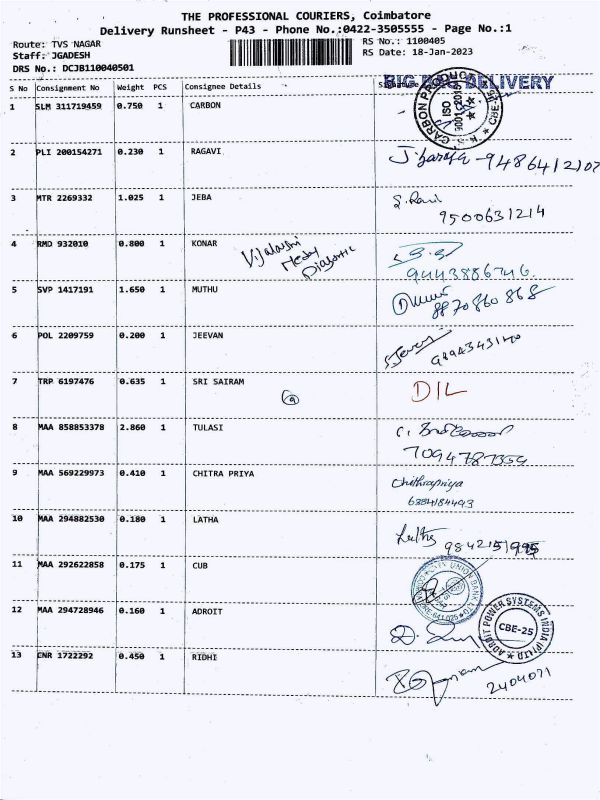 THE PROFESSIONAL COURIERS, Coimbatore
Delivery Runsheet - P43 - Phone No.:0422-3505555 - Page No.:1
Route: TVS NAGAR
Staff: JGADESH
DRS No.: DCJB110040501
RS No.: 1100405
RS Date: 18-Jan-2023
S No Consignment No Weight PCS Consignee Details Signature
DELIVERY
CARBON PRODUC
ISO 9001:2015
CBE
1 SLM 311719459 0.750 1 CARBON
2 PLI 200154271 0.230 1 RAGAVI
3 MTR 2269332 1.025 1 JEBA
9500631214
4 RMD 932010 0.800 1 KONAR
9443886746.
5 SVP 1417191 1.650 1 MUTHU
8870860868
6 POL 2209759 0.200 1 JEEVAN
7 TRP 6197476 0.635 1 SRI SAIRAM
D/L
8 MAA 858853378 2.860 1 TULASI
9 MAA 569229973 0.410 1 CHITRA PRIYA
Chithrapriya
6384184493
10 MAA 294882530 0.180 1 LATHA
11 MAA 292622858 0.175 1 CUB
UNION BANK
12 MAA 294728946 0.160 1 ADROIT
ADROIT POWER SYSTEMS INDIA (P) LTD
CBE-25
13 CNR 1722292 0.450 1 RIDHI
2404071